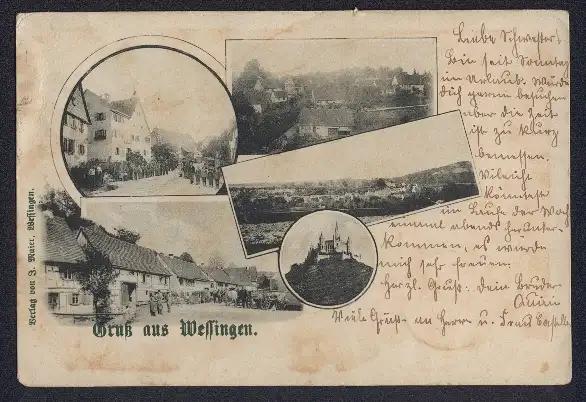 Liebe Schwester!
Bin seit Sonntag
im Urlaub. Würde
dich gerne besuchen
aber die Zeit
ist zu kurz
bemessen.
Vileicht
könntest
im Laufe der Woch
einmal abends herunter-
kommen, es würde
mich sehr freuen.
Herzl. Gruß. Dein Bruder
Viele Grüße an Herrn u. Frau
Verlag von J. Maier, Wessingen.
Gruß aus Wessingen.